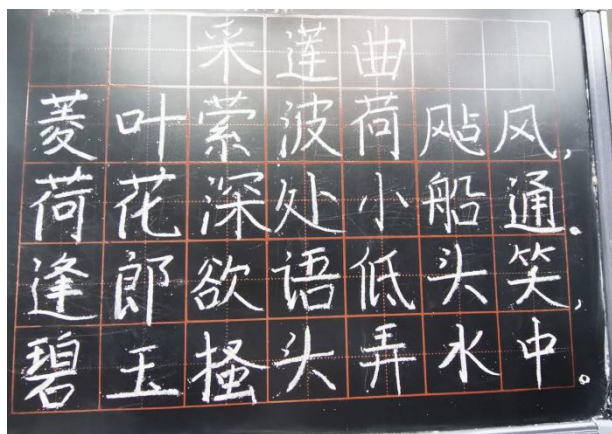 采莲曲
菱叶萦波荷飐风,
荷花深处小船通。
逢郎欲语低头笑,
碧玉搔头弄水中。